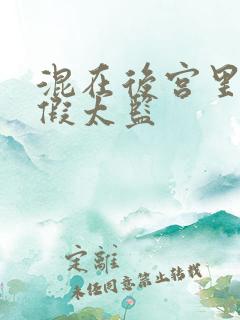 混在後宮里
假太監
定離
未任同意禁止转载